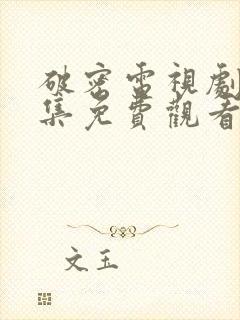 破密電視劇
集免費觀看
文玉